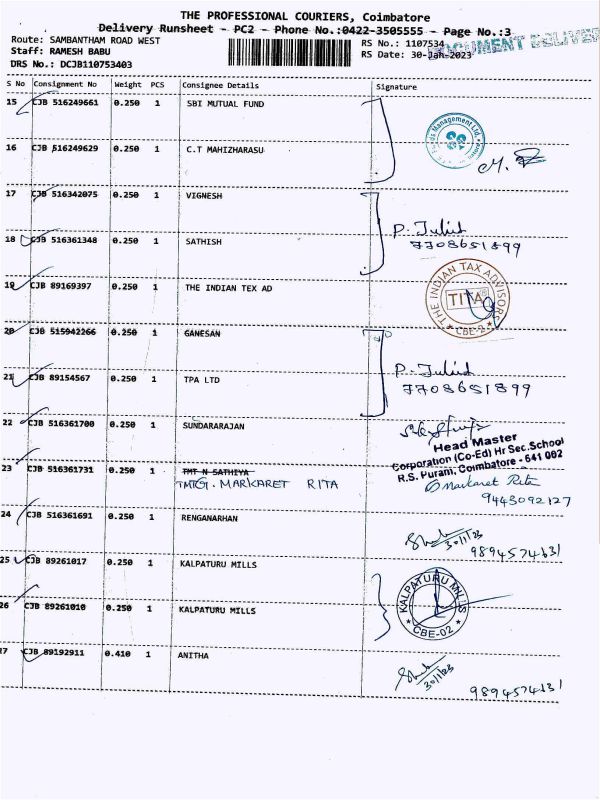 THE PROFESSIONAL COURIERS, Coimbatore
Delivery Runsheet - PC2 - Phone No.:0422-3505555 - Page No.:3
Route: SAMBANTHAM ROAD WEST
RS No.: 1107534
DOCUMENT DELIVER
Staff: RAMESH BABU
RS Date: 30-Jan-2023
DRS No.: DCJB110753403
S No Consignment No Weight PCS Consignee Details Signature
15 CJB 516249661 0.250 1 SBI MUTUAL FUND
16 CJB 516249629 0.250 1 C.T MAHIZHARASU
17 CJB 516342075 0.250 1 VIGNESH
18 CJB 516361348 0.250 1 SATHISH
7708651899
19 CJB 89169397 0.250 1 THE INDIAN TEX AD
THE INDIAN TAX ADVISORS
TITA
CBE-2
20 CJB 515942266 0.250 1 GANESAN
21 CJB 89154567 0.250 1 TPA LTD
7708651899
22 CJB 516361700 0.250 1 SUNDARARAJAN
Head Master
Corporation (Co-Ed) Hr Sec.School
R.S. Puram, Coimbatore - 641 002
23 CJB 516361731 0.250 1 TMT N SATHIYA
TMT G. MARKARET RITA
G Markaret Rita
9443092127
24 CJB 516361691 0.250 1 RENGANARHAN
30/1/23
9894574631
25 CJB 89261017 0.250 1 KALPATURU MILLS
26 CJB 89261010 0.250 1 KALPATURU MILLS
KALPATURU MILLS
CBE-02
27 CJB 89192911 0.410 1 ANITHA
30/1/23
9894574631